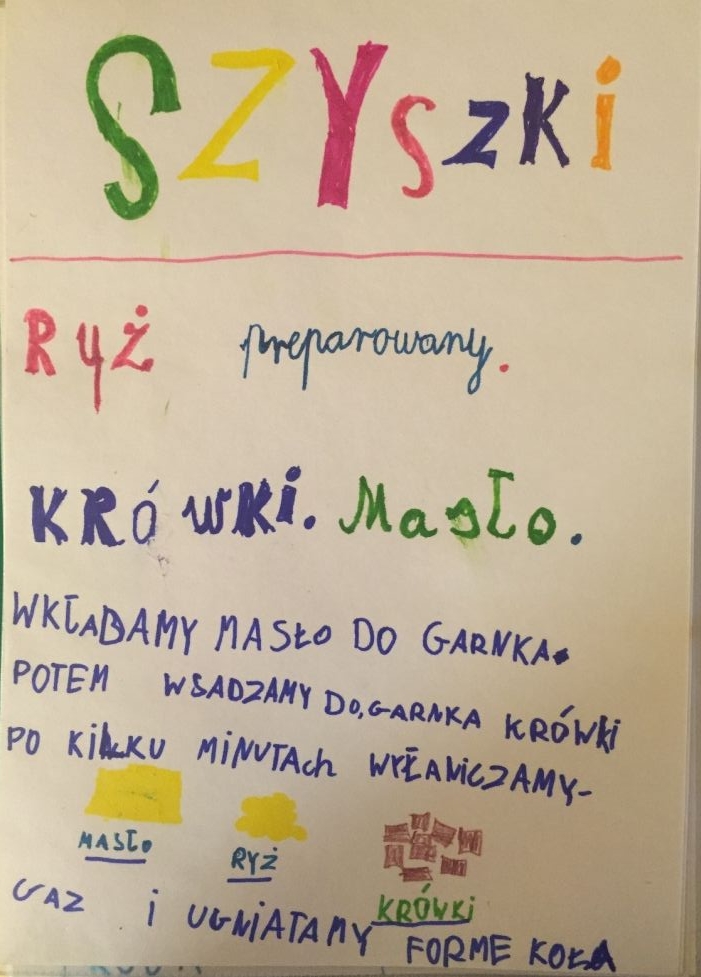 SZYSZKI
RYŻ preparowany.
KRÓWKI. Masło.
WKŁADAMY MASŁO DO GARNKA.
POTEM WSADZAMY DO, GARNKA KRÓWKI
PO KILKU MINUTACh WYŁANICZAMY-
MASŁO RYŻ KRÓWKI
GAZ i UGNIATAMY FORME KOŁA